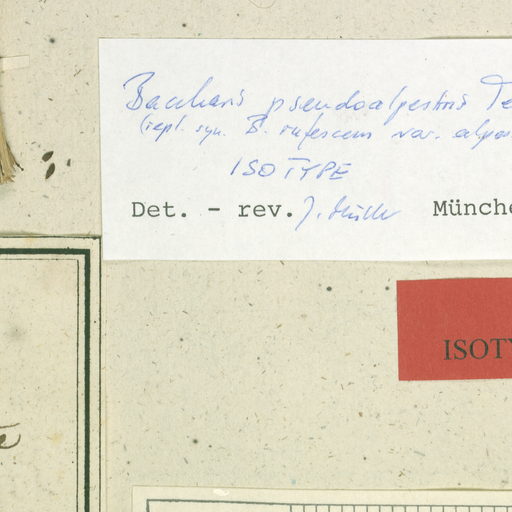 Baccharis pseudoalpestris Te
(repl. syn. B. rufescens var. alpes
ISOTYPE
Det. - rev. J. Müller Münche
ISOTY